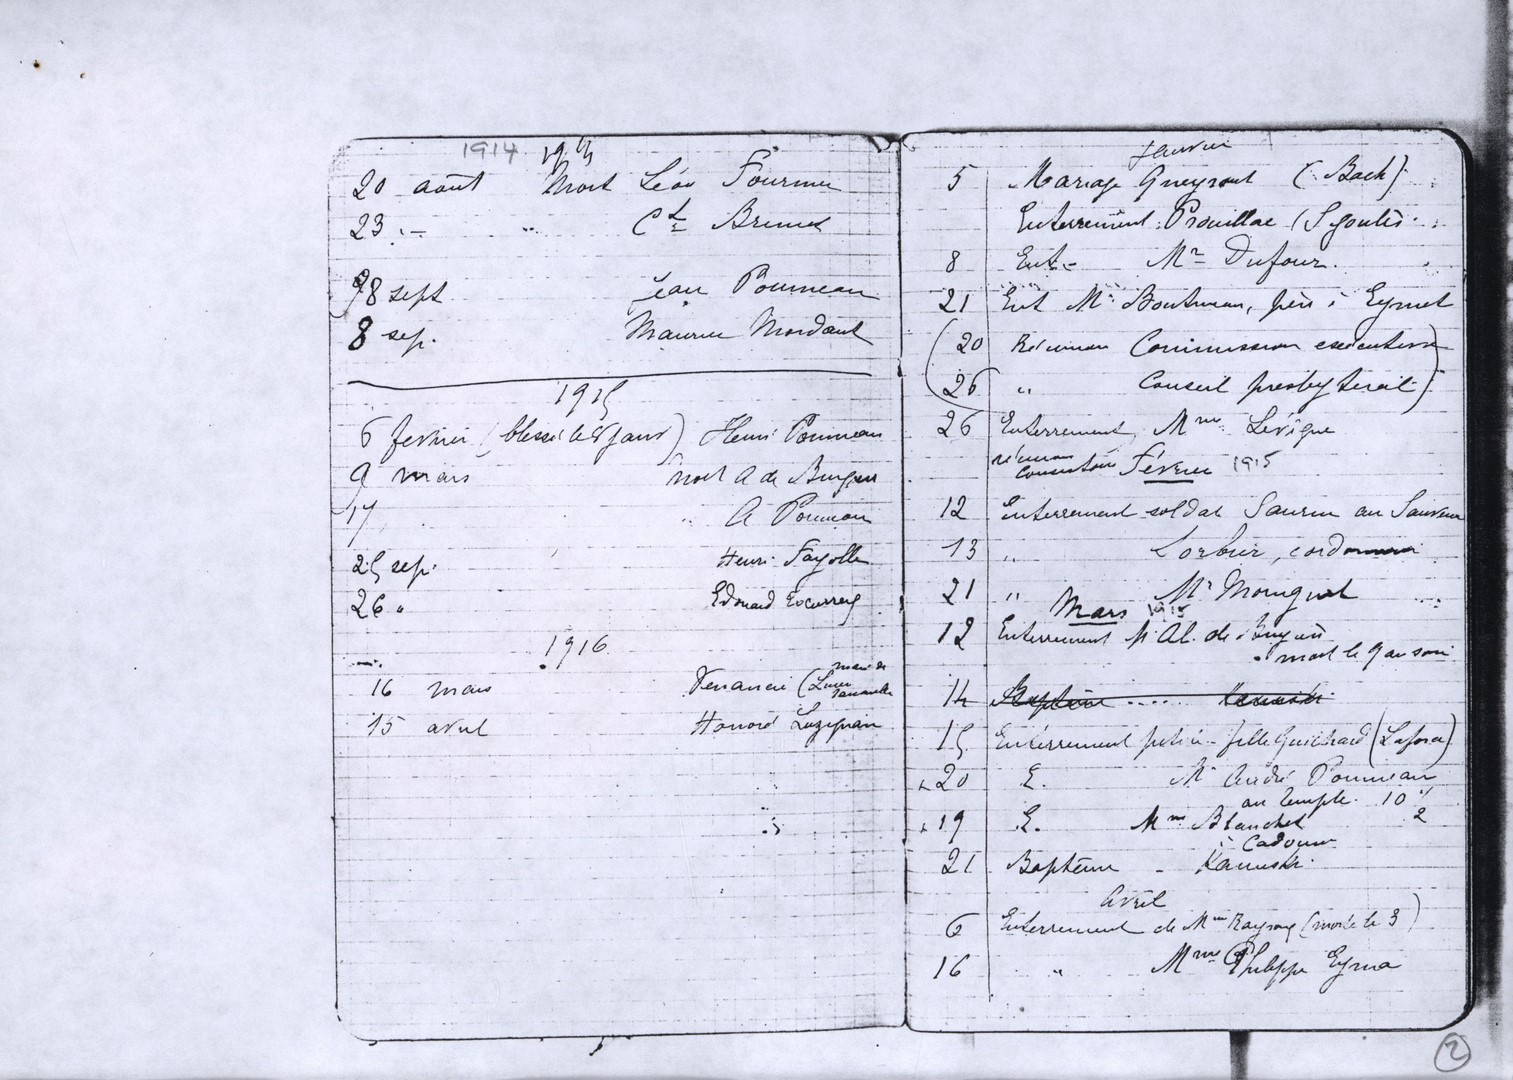 1914 1914
20 août Mort Léon Fournier
23 .- " Ct Brunet
28 sept Jean Pommeau
8 sep. Maurice Mordant
1915
6 fevrier (blessé le 5 janv) Henri Pommeau
9 mars mort A de Bruyère
17 " A Pommeau
25 sep. Henri Fayolle
26 " Edouard
1916
mari de
16 mars (Lucie
15 avril Honoré Luzignan
Janvier
5 Mariage Gueyraut (Bach)
Enterrement Prouillac (Sgoulès
8 Ent - Mr Dufour.
21 Ent Mr Boutman, père à Eymet
(20 Réunion Commission exécutive
26 " Conseil presbytéral)
26 Enterrement Mme Lévêque
réunion
Consistoire Février 1915
12 Enterrement soldat Saurin au Sauveur
13 " Lorbier, cordonnier
21 " Mr Mourguet
Mars 1915
12 Enterrement Mr Al. de Bruyère
mort le 9 au soir
14 Baptême .... Kaminski
15 Enterrement petite fille Guichard (Laforce)
20 E. Mr André Pommeau
au temple. 10 1/2
19 E. Mme Blanchet
à Cadouin
21 Baptême - Kaminski
Avril
6 Enterrement de Mme (morte le 3)
16 " Mme Philippe Eyma
2